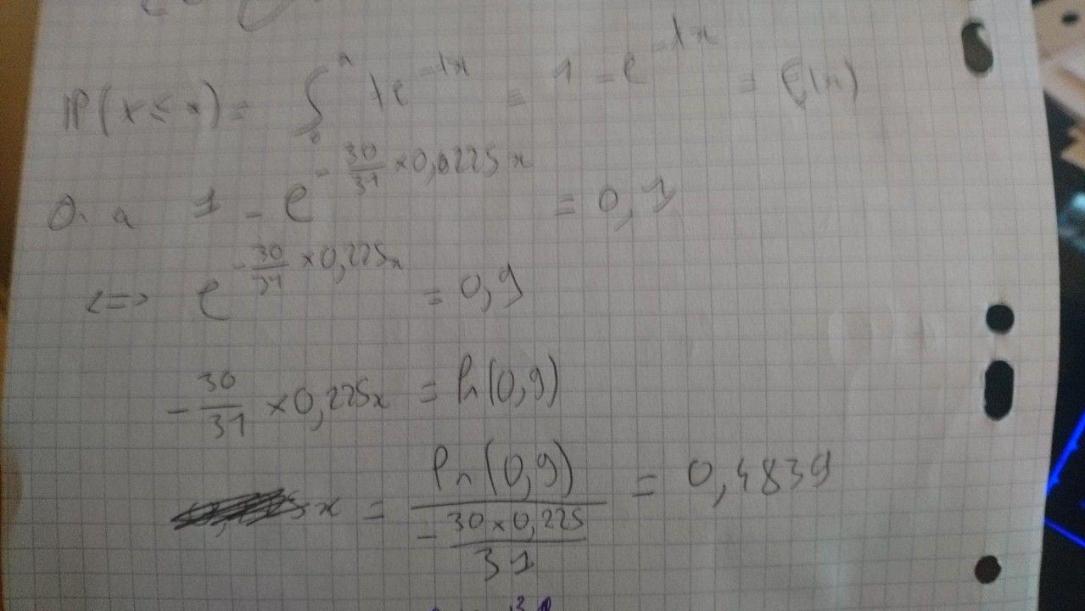 IP(X ≤ x) = ∫₀ˣ λe^-λx = 1 - e^-λx = E(x)
On a 1 - e^(-30/31 × 0,0225x) = 0,1
<=> e^(-30/31 × 0,225x) = 0,9
-30/31 × 0,225x = ln(0,9)
x = ln(0,9) / (-(30 × 0,225)/31) = 0,4839